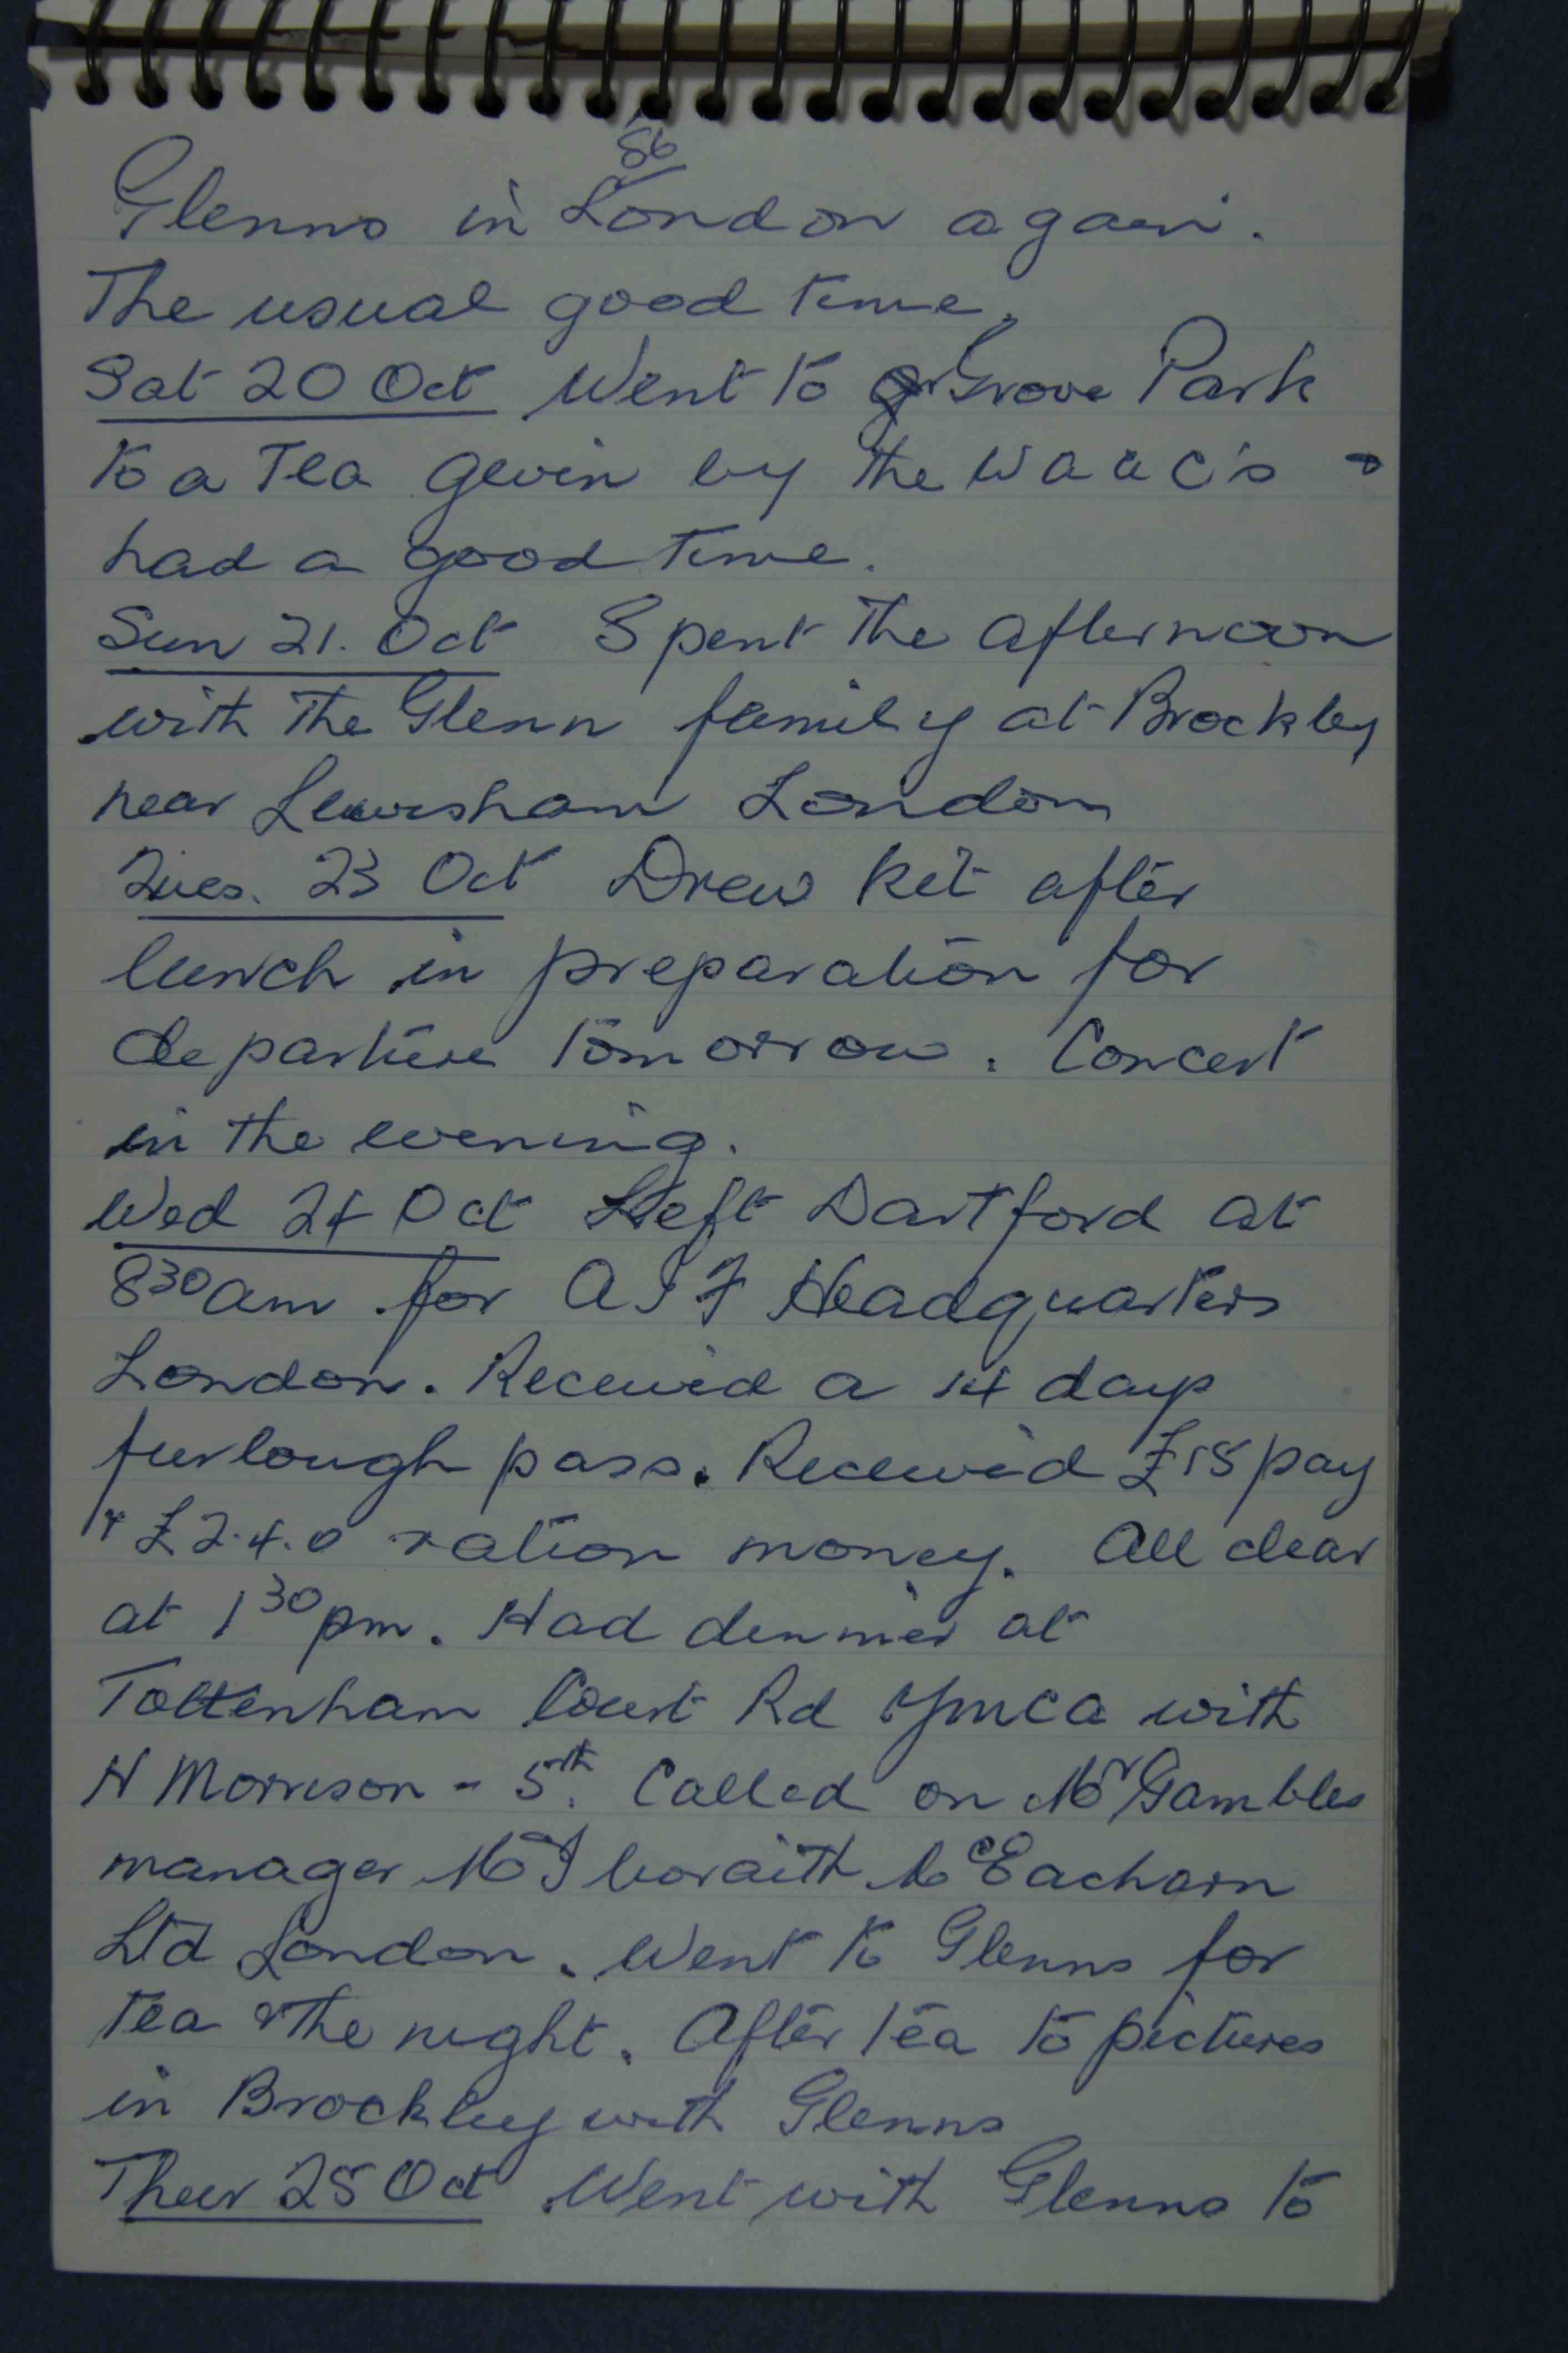 56
Glenns in London again.
The usual good time.
Sat 20 Oct Went to Grove Park
to a Tea given by the WAAC's &
had a good time.
Sun 21. Oct Spent the afternoon
with the Glenn family at Brockley
near Lewisham London
Tues. 23 Oct Drew kit after
lunch in preparation for
departure tomorrow. Concert
in the evening.
Wed 24 Oct Left Dartford at
8 30 am for AIF Headquarters
London. Received a 14 day
furlough pass. Received £15 pay
& £2.4.0 ration money. All clear
at 1 30 pm. Had dinner at
Tottenham Court Rd YMCA with
H Morrison - 5th. Called on Mr Gambles
manager McIlwraith McEacharn
Ltd London. Went to Glenns for
tea & the night. After tea to pictures
in Brockley with Glenns
Thur 25 Oct Went with Glenns to